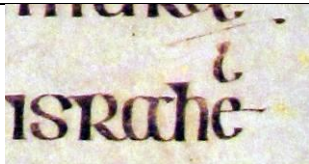 i
israhe